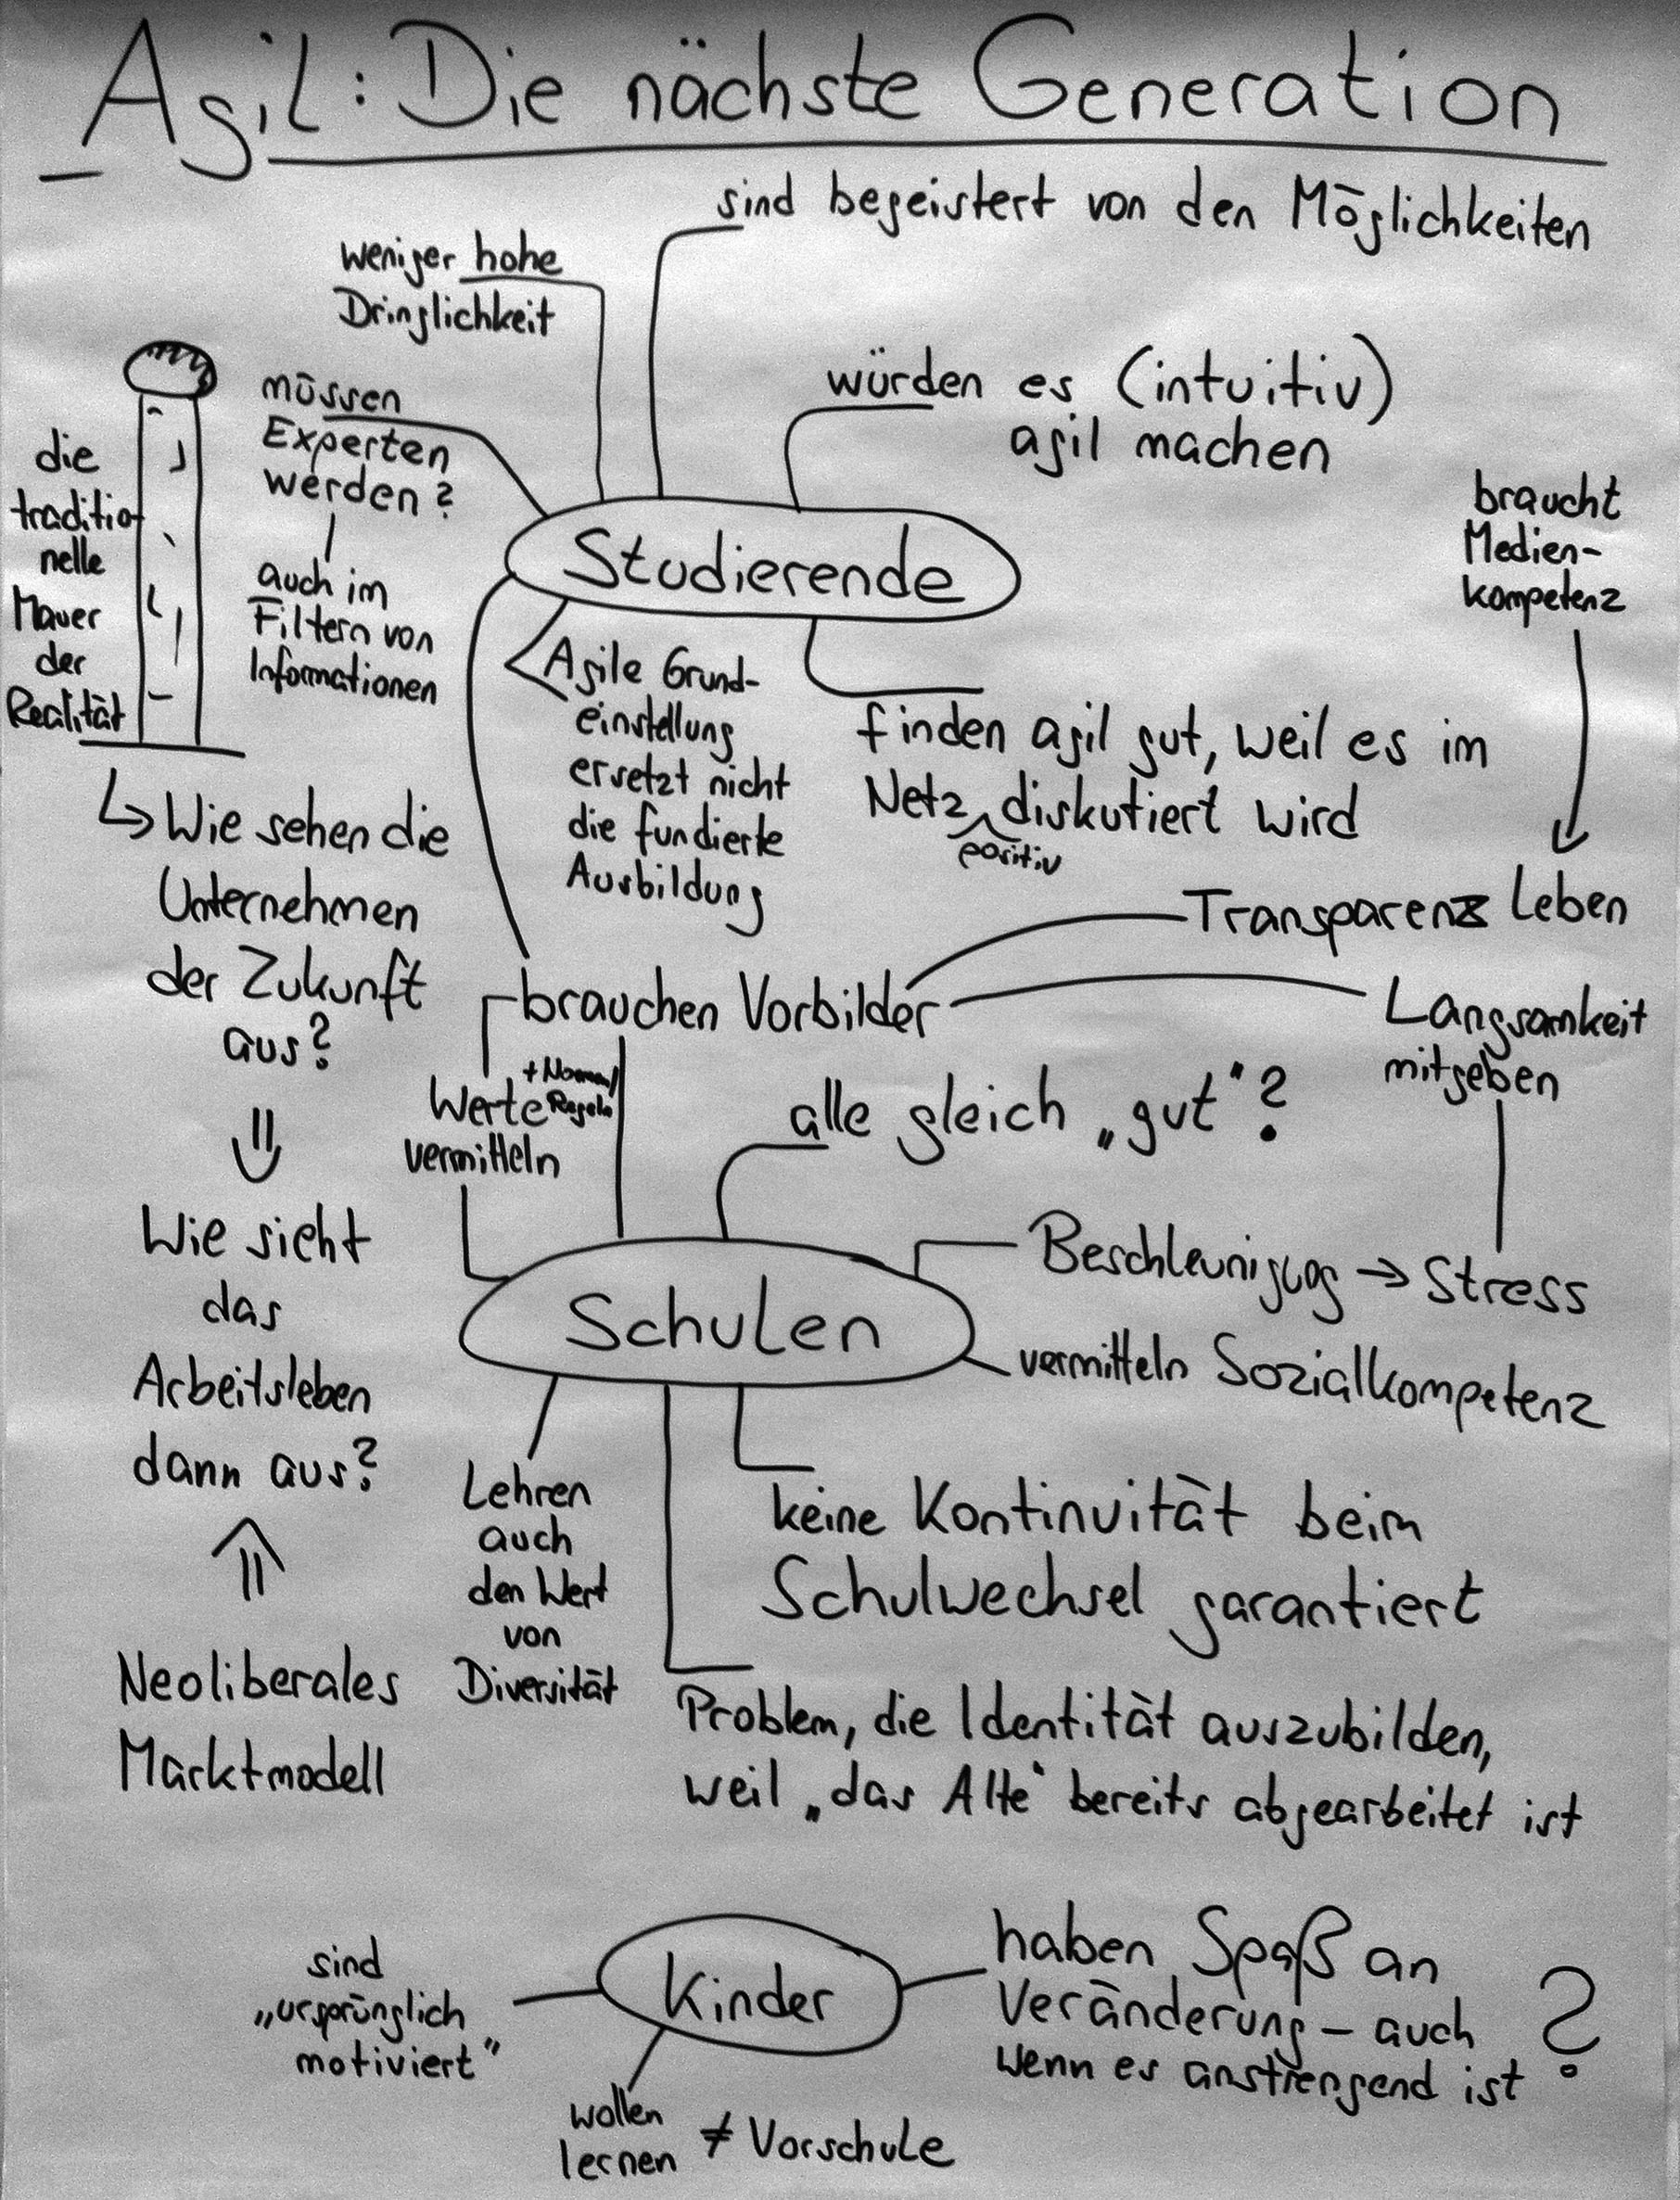 Agil: Die nächste Generation
sind begeistert von den Möglichkeiten
weniger hohe
Dringlichkeit
würden es (intuitiv)
agil machen
müssen
Experten
werden?
auch im
Filtern von
Informationen
die
traditio-
nelle
Mauer
der
Realität
Studierende
braucht
Medien-
kompetenz
Agile Grund-
einstellung
ersetzt nicht
die fundierte
Ausbildung
finden agil gut, weil es im
Netz diskutiert wird
positiv
Wie sehen die
Unternehmen
der Zukunft
aus?
⇓
Wie sieht
das
Arbeitsleben
dann aus?
⇑
Neoliberales
Marktmodell
Transparenz Leben
brauchen Vorbilder
Langsamkeit
mitgeben
+ Normen/
Werte Regeln
vermitteln
alle gleich „gut“?
Beschleunigug → Stress
Schulen
vermitteln Sozialkompetenz
Lehren
auch
den Wert
von
Diversität
keine Kontinuität beim
Schulwechsel garantiert
Problem, die Identität auszubilden,
weil „das Alte“ bereits abgearbeitet ist
sind
„ursprünglich
motiviert“
Kinder
haben Spaß an
Veränderung – auch
wenn es anstrengend ist ?
wollen
lernen ≠ Vorschule